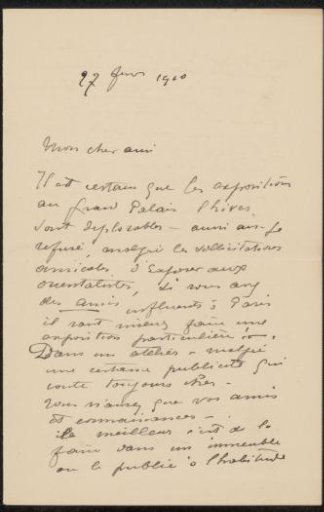 27 fevr 1910
Mon cher ami
Il est certain que les expositions
au grand Palais l'hiver
sont deplorables - aussi ai-je
refusé, malgré les sollicitations
amicales d'exposer aux
orientalistes, si vous avez
des amis influents à Paris
il vaut mieux faire une
exposition particulière
Dans un atelier - malgré
une certaine publicité qui
coute toujours cher -
vous n'aurez que vos amis
et connaissances -
le meilleur c'est de la
faire dans un immeuble
ou le public a l'habitude